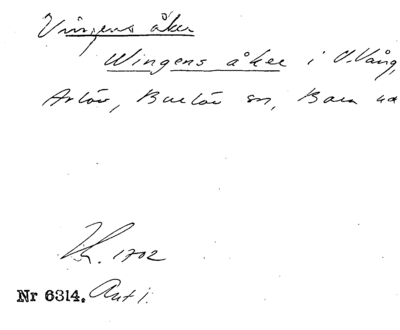 Vingens åker
Wingens åker i V. Vång,
Arlöv, Burlöv sn, Bara hd
Kh. 1702
Nr 6314. Avt 1.